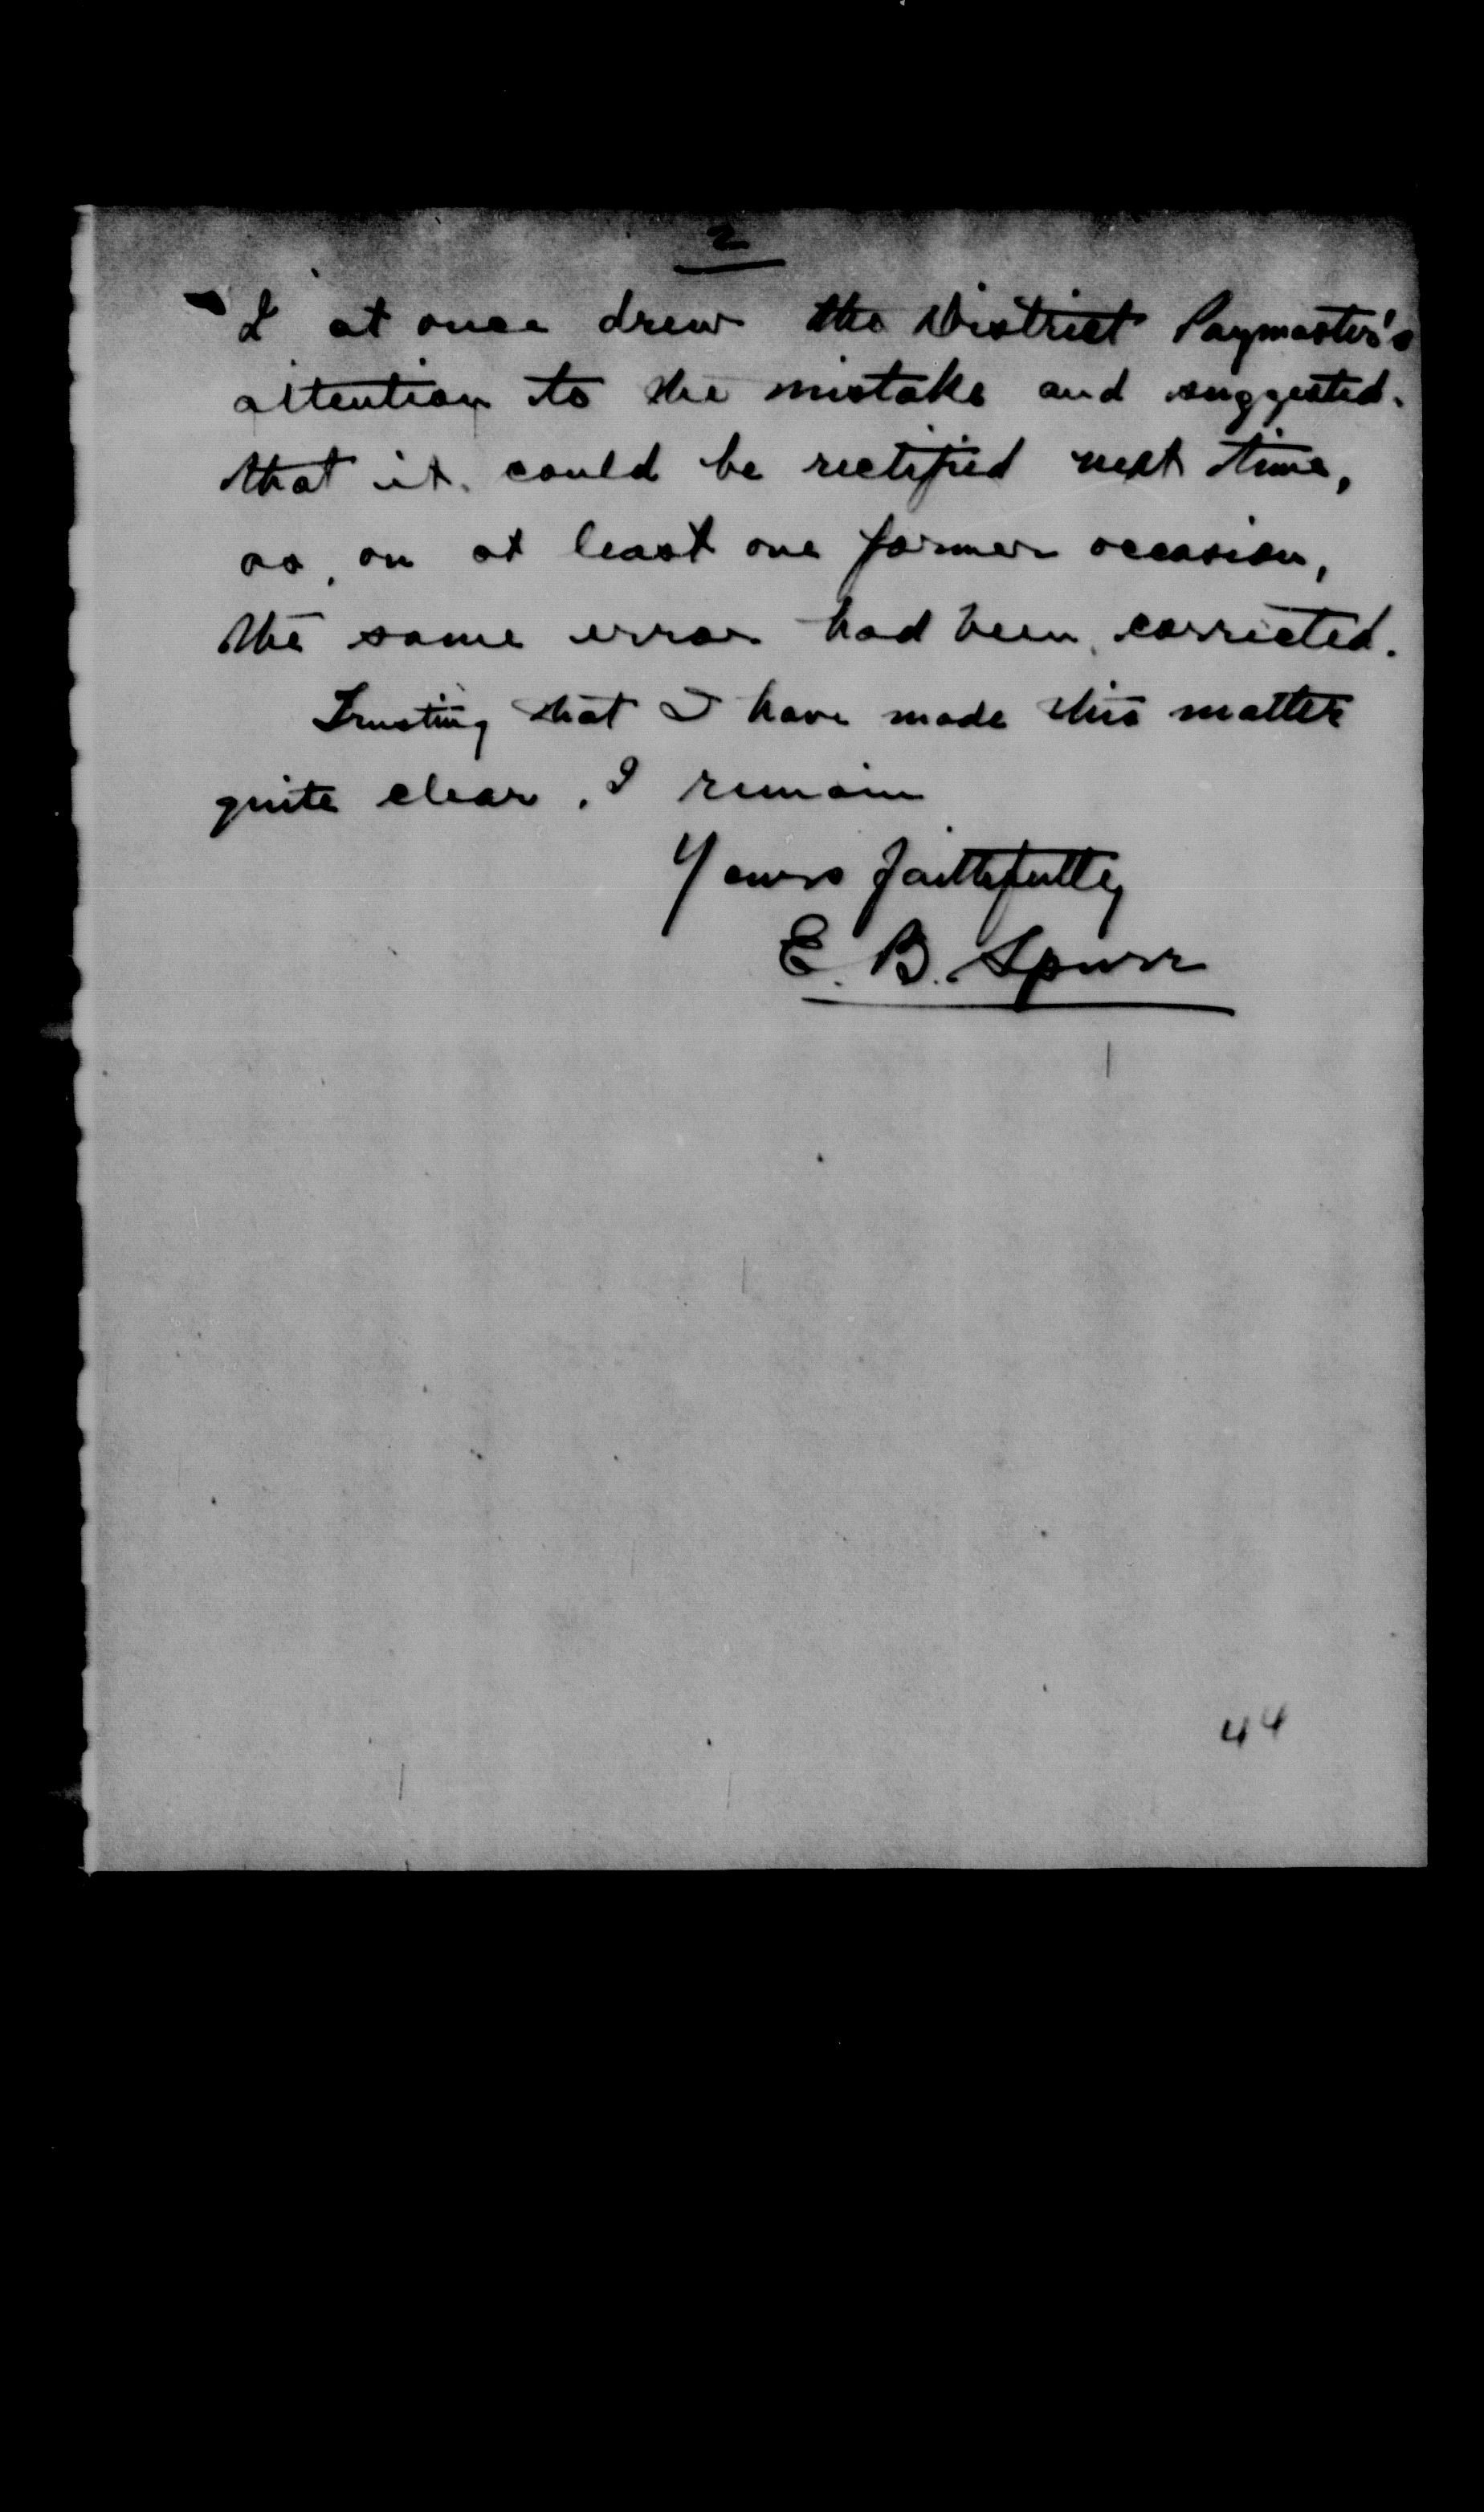 2
I at once drew the District Paymaster's
attention to the mistake and suggested.
that it could be rectified next time,
as, on at least one former occasion,
the same error had been corrected.
Trusting that I have made this matter
quite clear, I remain
Yours faithfully
E. B. Spurr
44